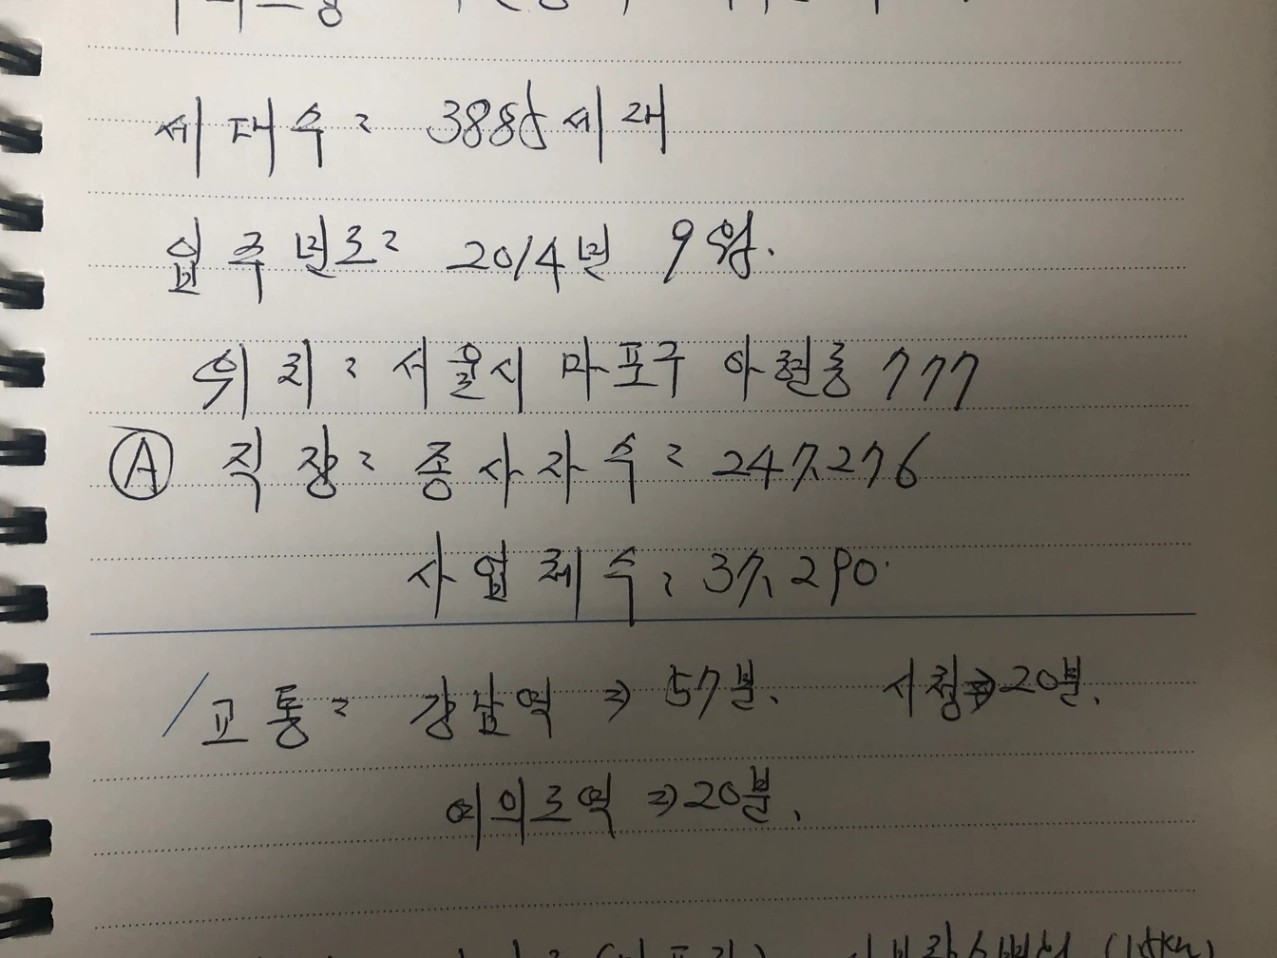 세대수: 3885세대
입주년도: 2014년 9월.
위치: 서울시 마포구 아현동 777
Ⓐ 직장: 종사자수: 247,276
사업체수: 37,290.
/교통: 강남역 ⇒ 57분. 시청⇒20분.
여의도역 ⇒20분.